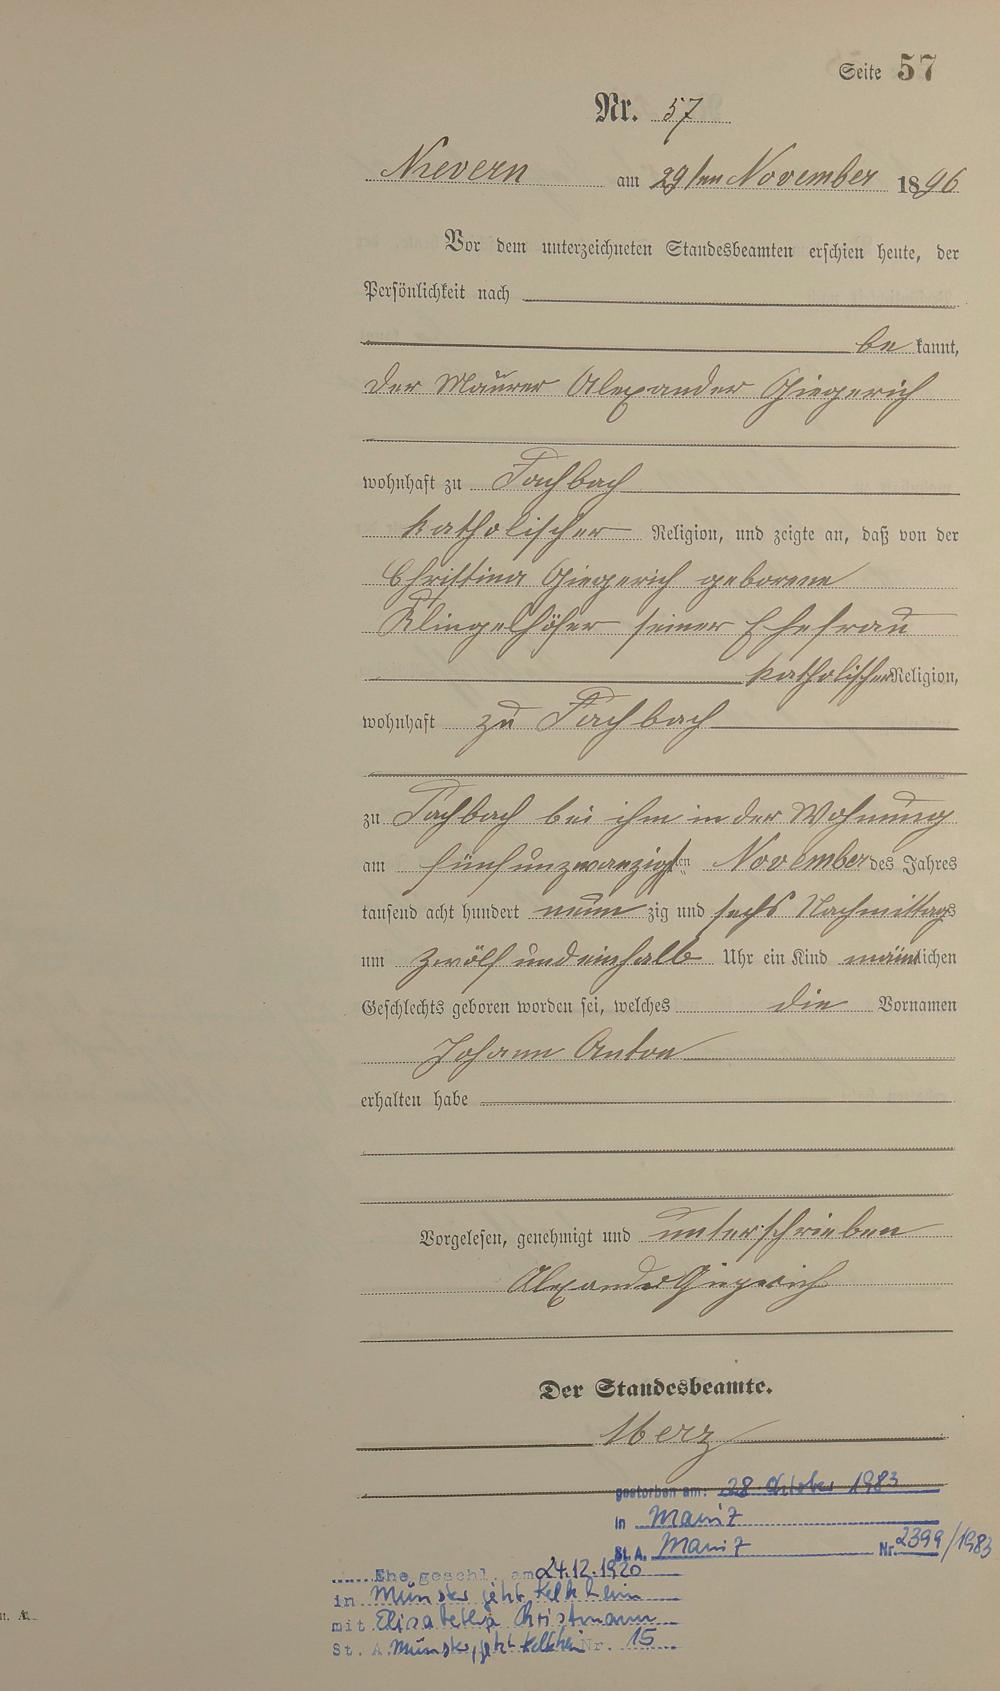 Seite 57
Nr. 57
Nievern am 29ten November 1896
Vor dem unterzeichneten Standesbeamten erschien heute, der
Persönlichkeit nach
be kannt,
der Maurer Alexander Giegerich
wohnhaft zu Fachbach
katholischer Religion, und zeigte an, daß von der
Christina Giegerich geborene
Klingelhöfer seiner Ehefrau
katholischer Religion,
wohnhaft zu Fachbach
zu Fachbach bei ihm in der Wohnung
am fünfunzwanzigsten November des Jahres
tausend acht hundert neun zig und sechs Nachmittags
um zwölf und einhalb Uhr ein Kind männlichen
Geschlechts geboren worden sei, welches die Vornamen
Johann Anton
erhalten habe
Vorgelesen, genehmigt und unterschrieben
Alexander Giegerich
Der Standesbeamte.
gestorben am: 28. Oktober 1983
in Mainz
St. A. Mainz Nr. 2399/1983
Ehe geschl. am 24.12.1920
in Münster jetzt Kelkheim
mit Elisabetha Christmann
St. A. Münster, jetzt Kelkheim Nr. 15